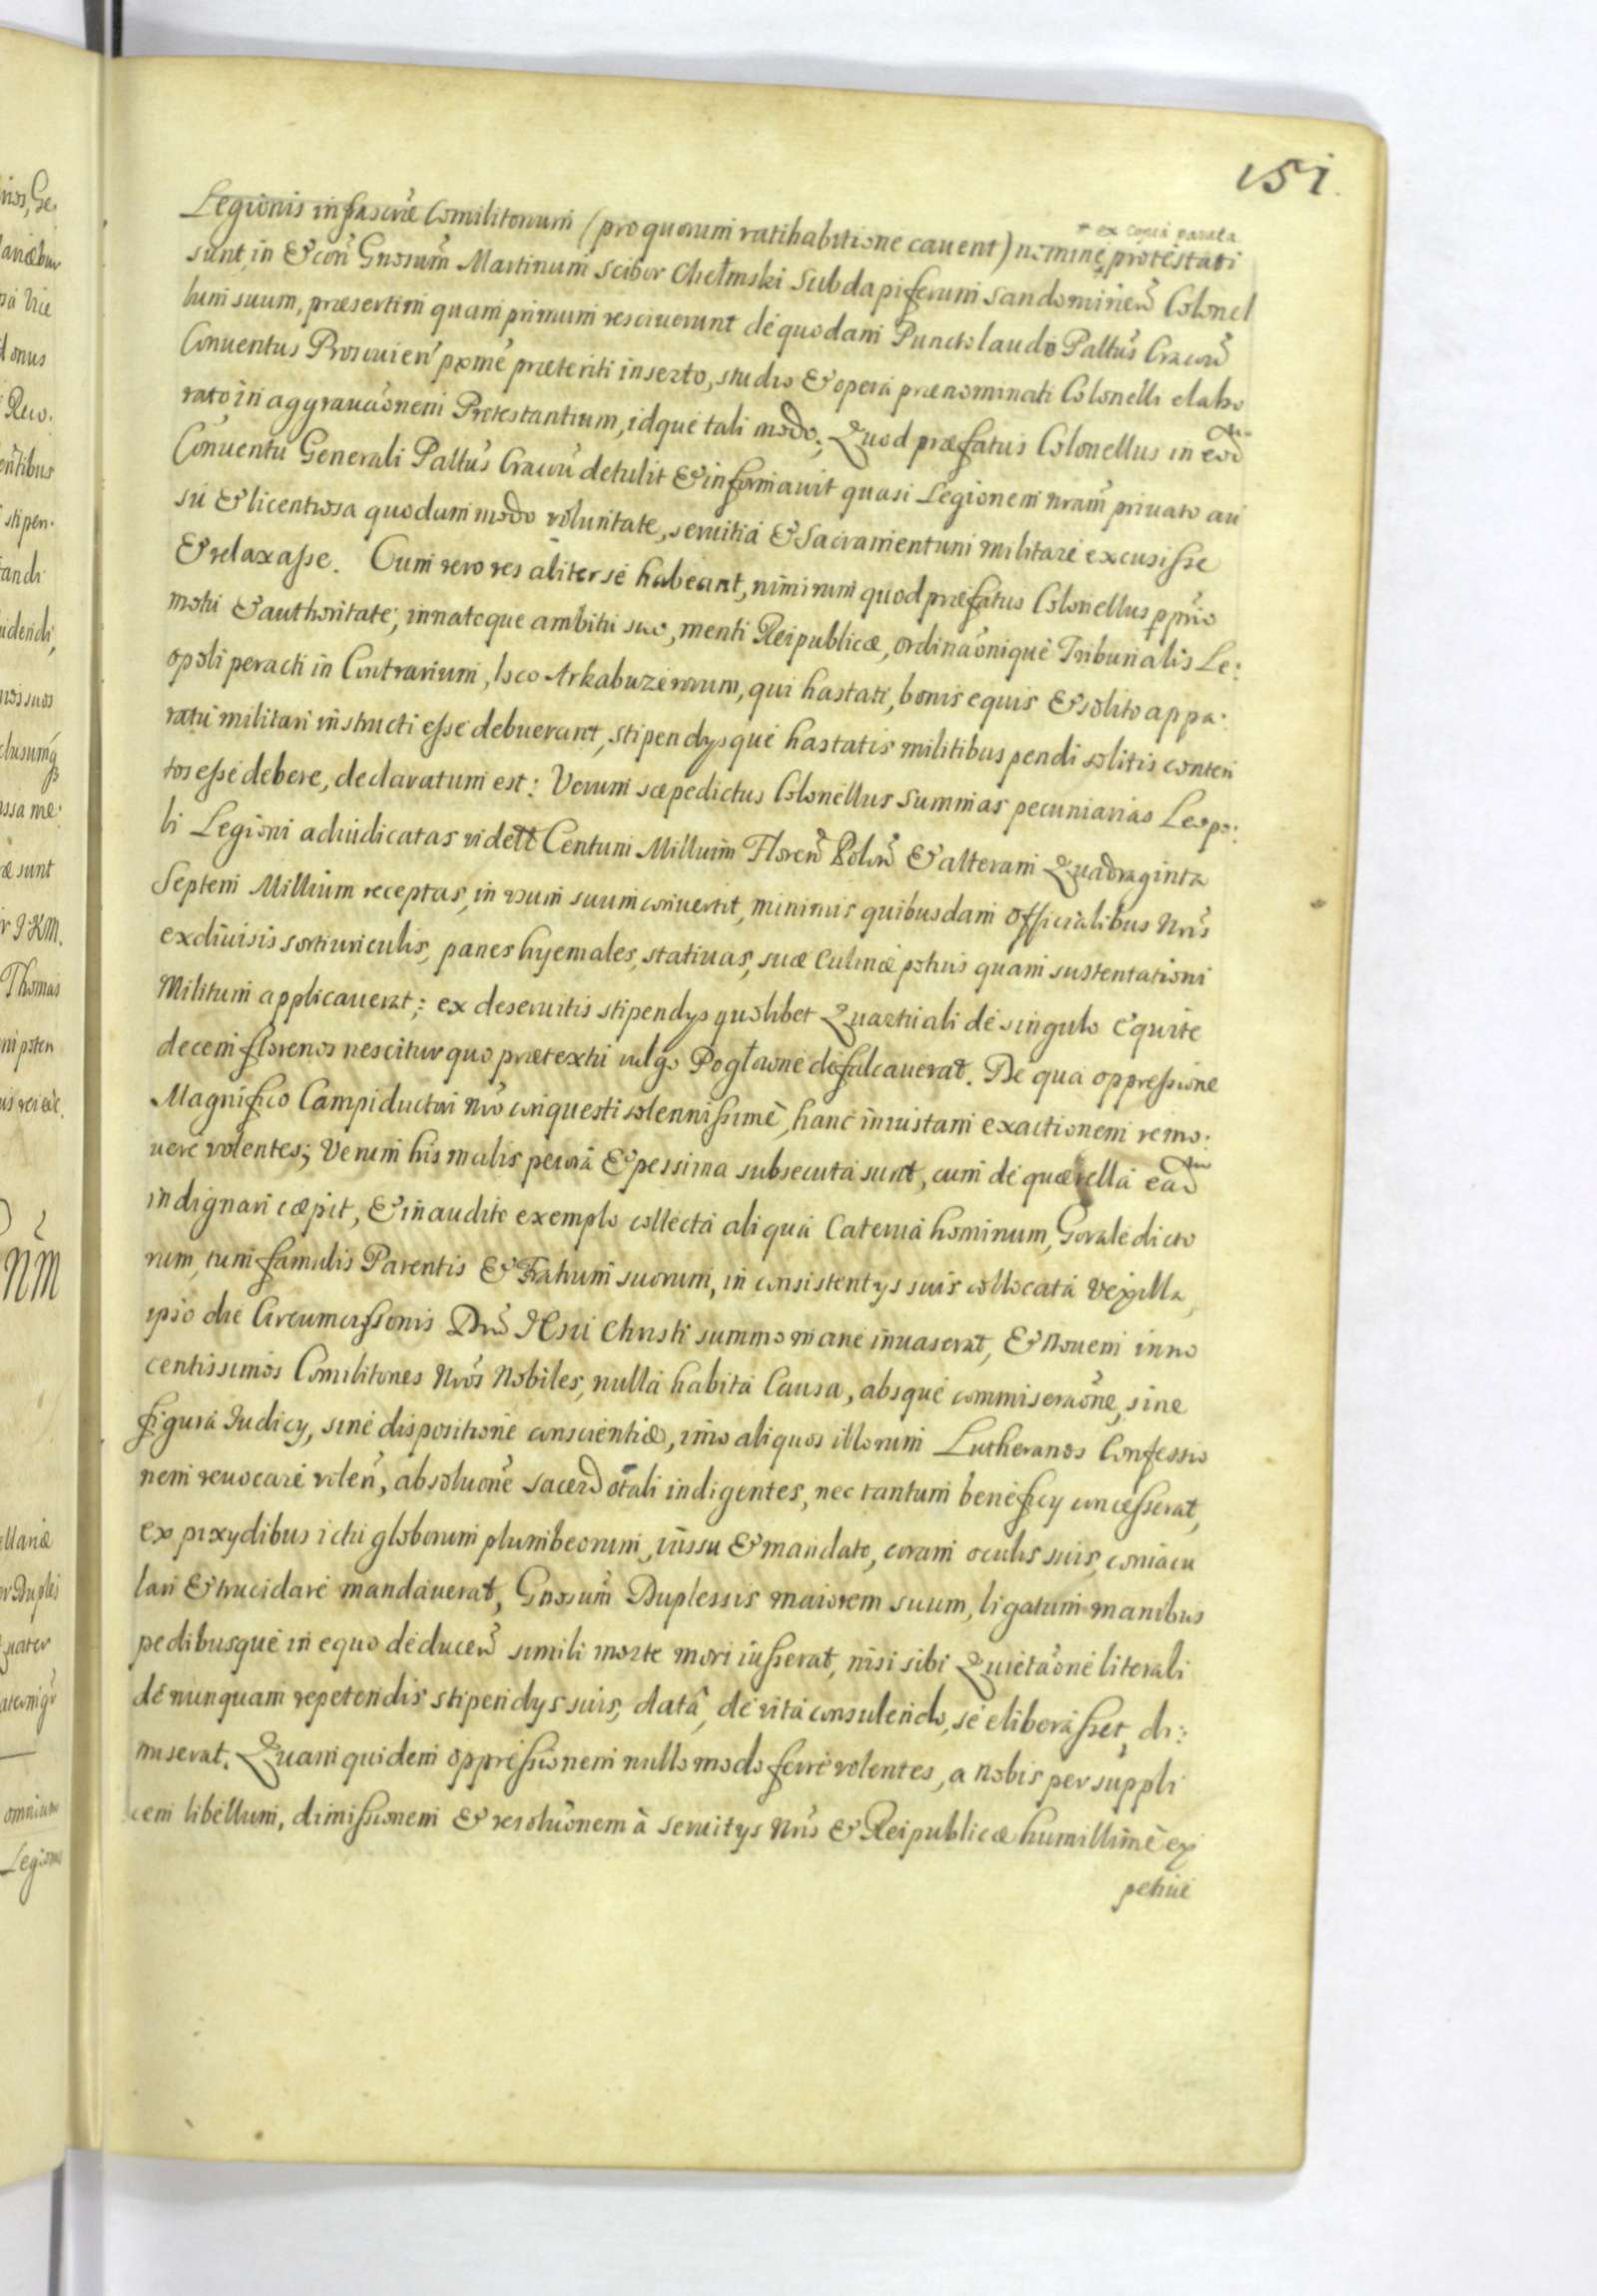 151.
Legionis infrascriptæ Comilitonum (pro quorum ratihabitione cauent) nomine protestati
+ ex copia parata
sunt, in & con̄ Gnosum̄ Martinum Scibor Chełmski Subdapiferum Sandomirien̄ Colonel
lum suum, præsertim quam primum resciuerunt de quodam Puncto laudo Pałtus̄ Cracoun̄
Conuentus Proscouien̄ pxme præteriti inserto, studio & opera prænominati Colonelli elabo
rato in aggrauaōnem Protestantium, idque tali modo; Quod præfatus Colonellus in eod
Conuentu Generali Pałtus̄ Cracou̅ detulit & informauit quasi Legionem nram̄ priuato au
su & licentiosa quodam modo voluntate, seruitia & Sacramentum militare excusisse
& relaxasse. Cum vero res aliter se habeant, nimirum quod præfatus Colonellus pprio
motu & authoritate, innatoque ambitu suo, menti Reipublicæ, ordinaōnique Tribunalis Le:
opoli peracti in Contrarium, loco Arkabuzerorum, qui hastati, bonis equis & solito appa:
ratu militari instructi esse debuerant, stipendysque hastatis militibus pendi solitis conten
tos esse debere, declaratum est: Verum sæpedictus Colonellus Summas pecuniarias Leopo:
li Legioni adiudicatas videlt Centum Millium Floren̄ Polon̄ & alteram Quadraginta
Septem Millium receptas, in usum suum conuertit, minimis quibusdam Officialibus Nris̄
ex diuisis sortiunculis, panes hyemales, statiuas, suæ Culinæ potius quam sustentationi
Militum applicauerat; ex deseruitis stipendys quolibet Quartuali de singulo Equite
decem florenos nescitur quo prætextu vulgo Pogłowne defalcauerat. De qua oppressione
Magnifico Campiductori Nro conquesti solennissime, hanc iniustam exactionem remo:
uere volentes; Verum his malis peiora & pessima subsecuta sunt, cum de quærella ead
indignari cæpit, & inaudito exemplo collecta aliqua Caterua hominum, Gorale dicto
rum, tum famulis Parentis & Fratrum suorum, in consistentys suis collocata Vexilla,
ipso die Circumcissionis Dni IEsu Christi summo mane inuaserat, & Nouem inno
centissimos Comilitones Nros̄ Nobiles, nulla habita Causa, absque commiseraōne, sine
figura Iudicy, sine dispositione conscientiæ, imo aliquos illorum Lutheranos Confessio
nem reuocare volen̄, absoluōne Sacerdotali indigentes, nec tantum beneficy concesserat,
ex pixydibus ictu globorum plumbeorum, iussu & mandato, coram oculis suis, coniacu
lari & trucidare mandauerat, Gnosum̄ Duplessis maiorem suum, ligatum manibus
pedibusque in equo deducen̄ simili morte mori iusserat, nisi sibi Quietaōne literali
de nunquam repetendis stipendys suis, data, de vita consulendo, se eliberasset, di:
miserat. Quam quidem oppressionem nullo modo ferre volentes, a Nobis per suppli
cem libellum, dimissionem & resoluōnem à seruitys Nris̄ & Reipublicæ humillime ex
petiue